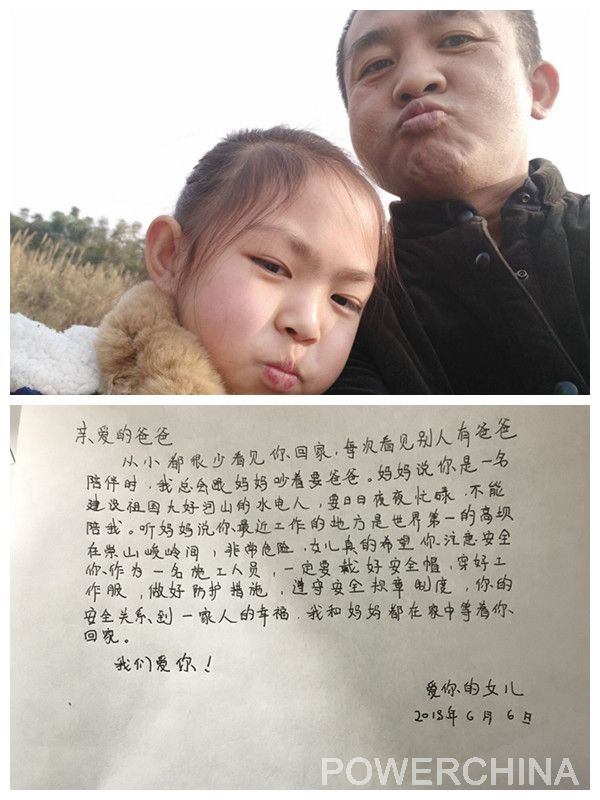 亲爱的爸爸
从小都很少看见你回家，每次看见别人有爸爸
陪伴时，我总会跟妈妈吵着要爸爸。妈妈说你是一名
建设祖国大好河山的水电人，要日日夜夜忙碌，不能
陪我。听妈妈说你最近工作的地方是世界第一的高坝
在崇山峻岭间，非常危险，女儿真的希望你注意安全
你作为一名施工人员，一定要戴好安全帽，穿好工
作服，做好防护措施，遵守安全规章制度，你的
安全关系到一家人的幸福，我和妈妈都在家中等着你
回家。
我们爱你！
爱你的女儿
2018年6月6日
POWERCHINA